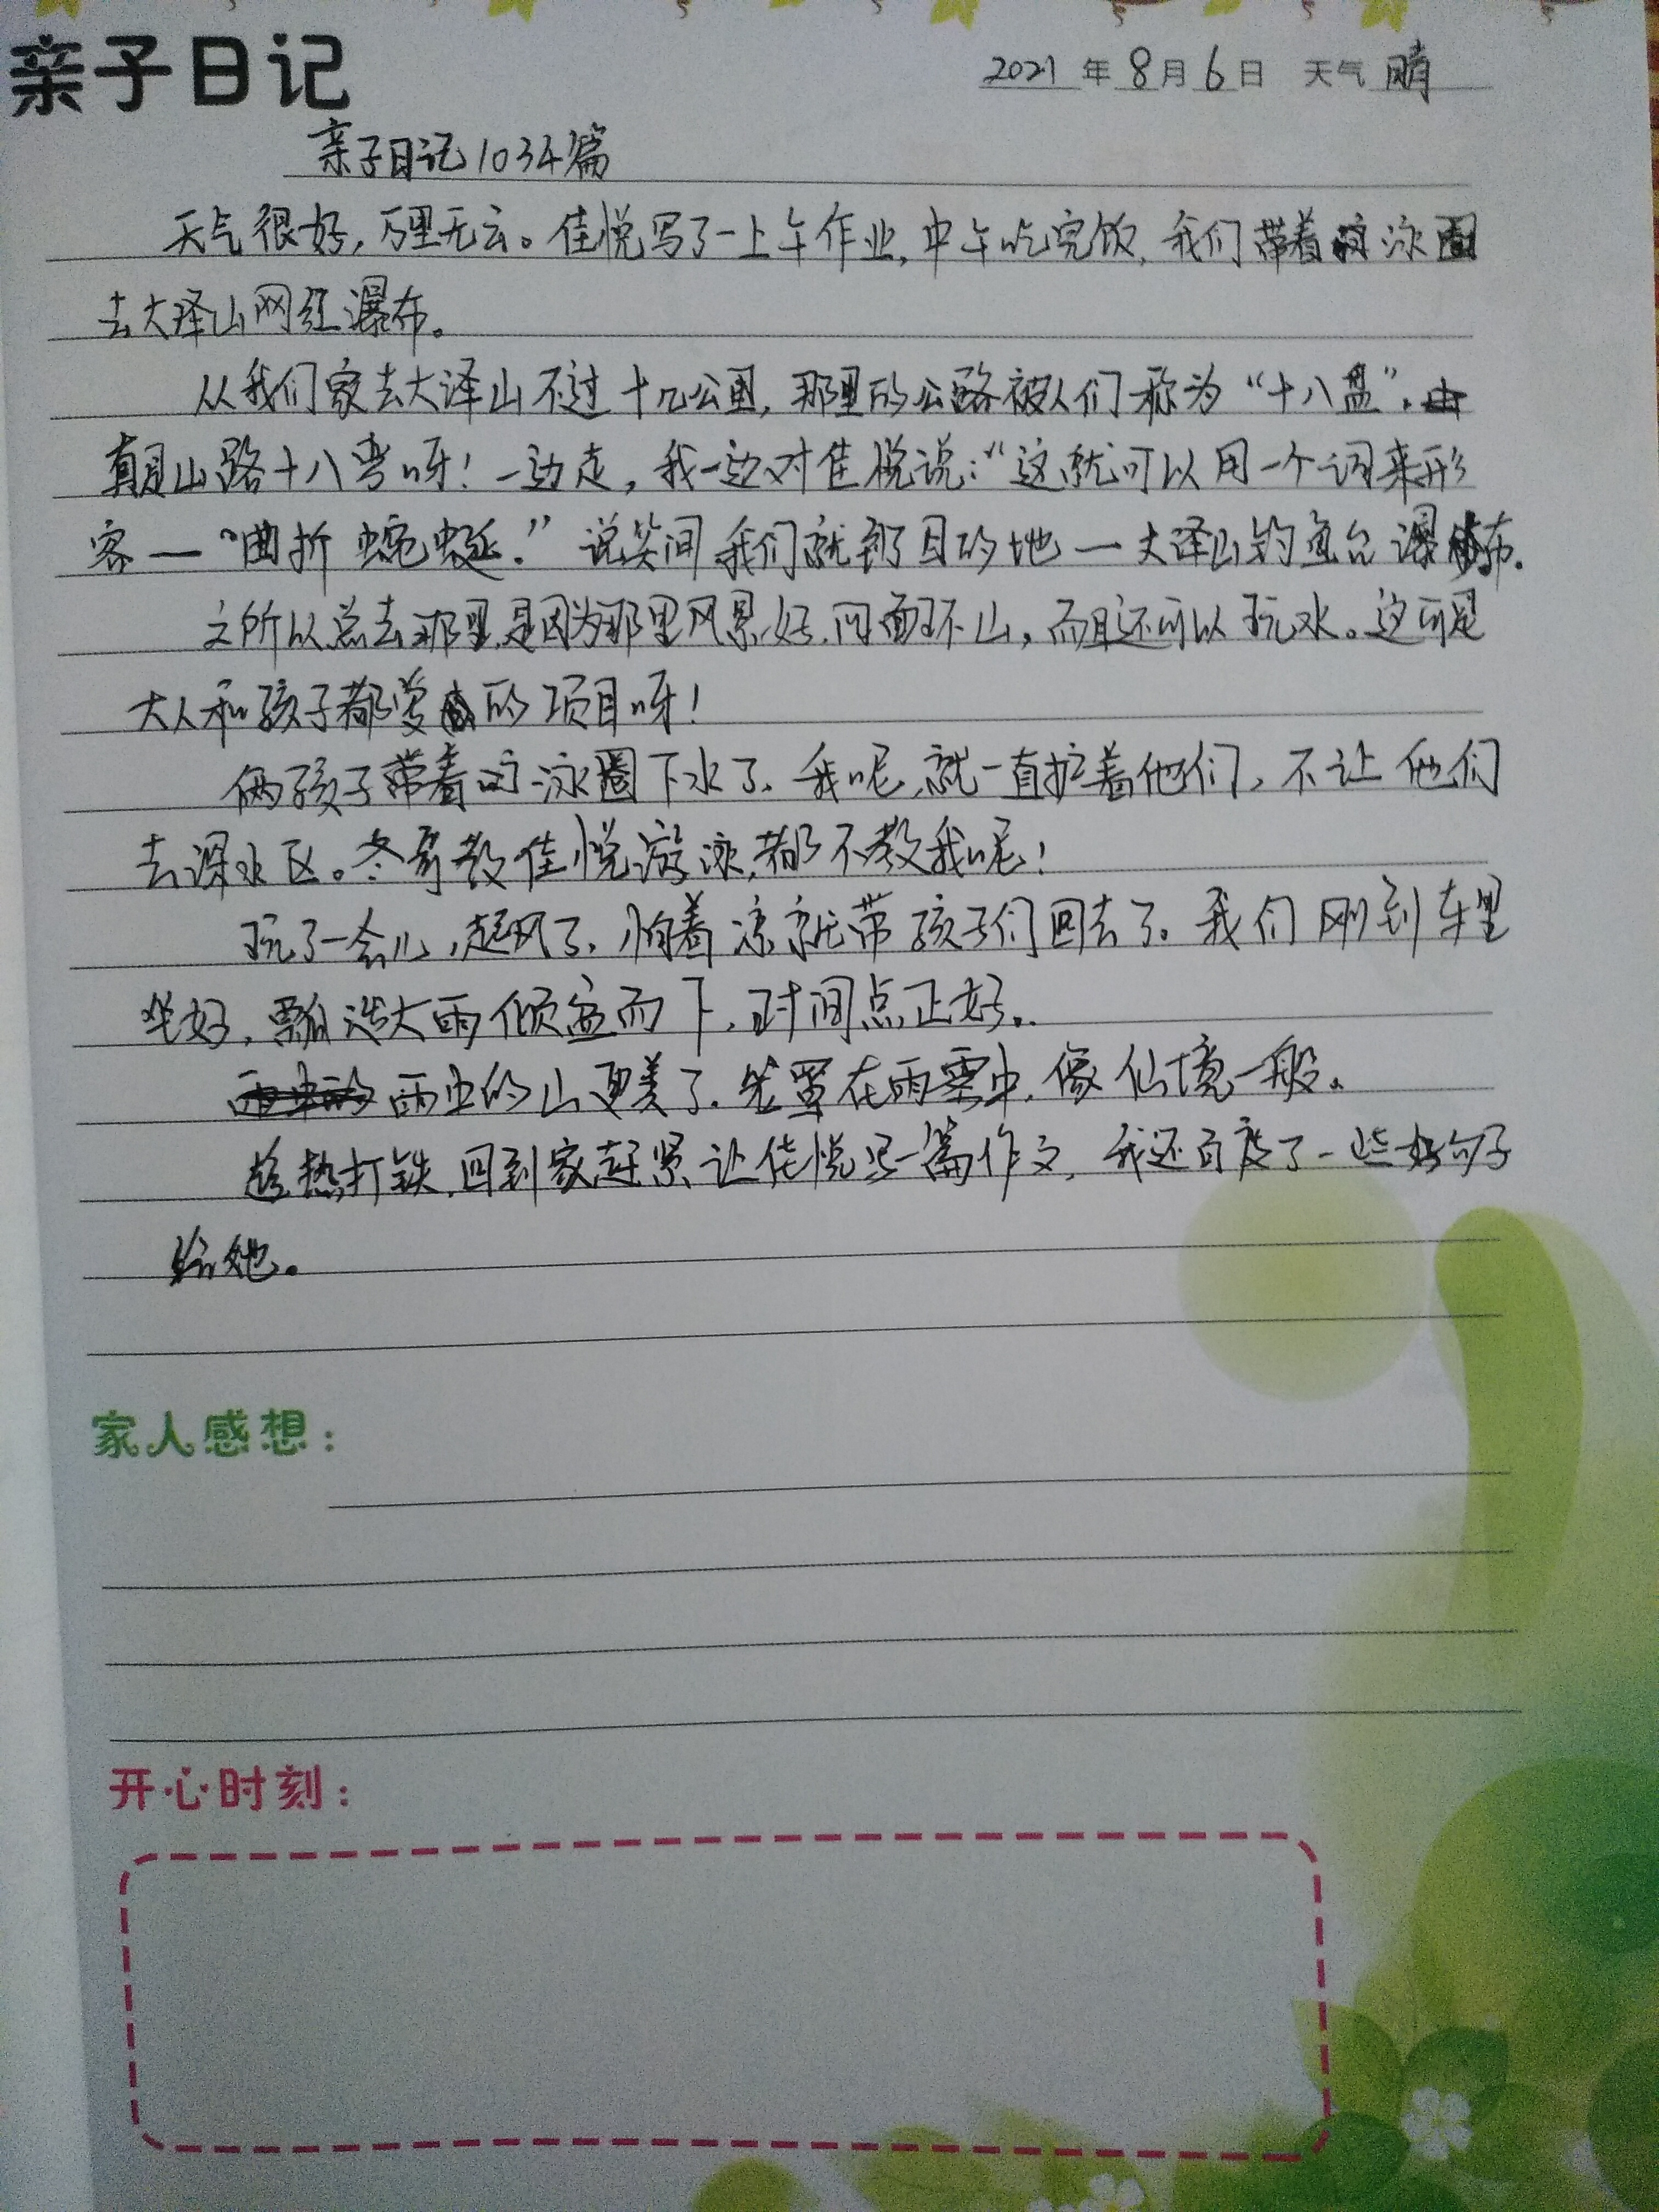 亲子日记
2021 年 8 月 6 日 天气 晴
亲子日记1034篇
天气很好,万里无云。佳悦写了一上午作业,中午吃完饭,我们带着泳圈
去大泽山网红瀑布。
从我们家去大泽山不过十几公里,那里的公路被人们称为“十八盘”。
真是山路十八弯呀!一边走,我一边对佳悦说:“这就可以用一个词来形
容—“曲折蜿蜒.”说笑间,我们就到了目的地—大泽山钓鱼台瀑布.
之所以总去那里,是因为那里风景好,四面环山,而且还可以玩水。这可是
大人和孩子都爱的项目呀!
俩孩子带着泳圈下水了.我呢,就一直护着他们,不让他们
去深水区。冬哥教佳悦游泳,都不教我呢!
玩了一会儿,起风了.怕着凉就带孩子们回去了。我们刚到车里
坐好,瓢泼大雨倾盆而下,时间点正好。
雨中的山更美了.笼罩在雨雾中,像仙境一般。
趁热打铁,回到家赶紧让佳悦写一篇作文,我还百度了一些好句子
给她。
家人感想:
开心时刻: